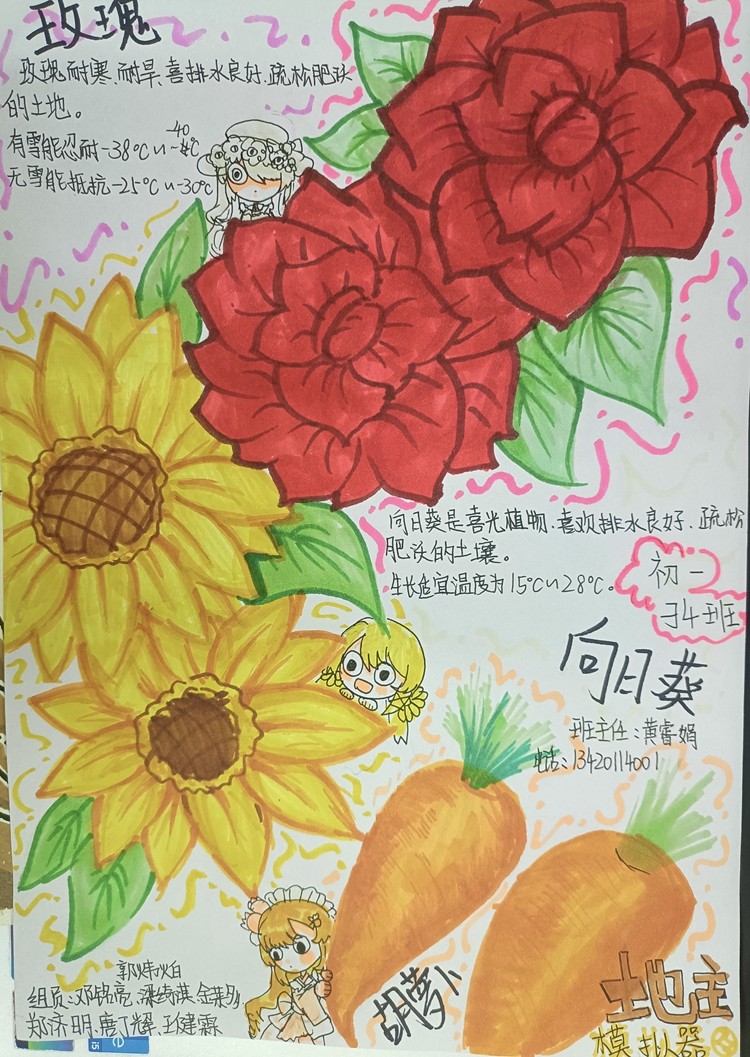 玫瑰
玫瑰耐寒、耐旱、喜排水良好、疏松肥沃
的土地。
有雪能忍耐-38℃~-40℃
无雪能抵抗-25℃~-30℃
向日葵是喜光植物、喜欢排水良好、疏松
肥沃的土壤。
生长适宜温度为15℃~28℃。
初一
34班
向日葵
班主任:黄睿娟
电话:13420114001
郭炜焰
组员:邓铭亮、
郑济明、唐丁耀、王健霖
胡萝卜
地主
模拟器